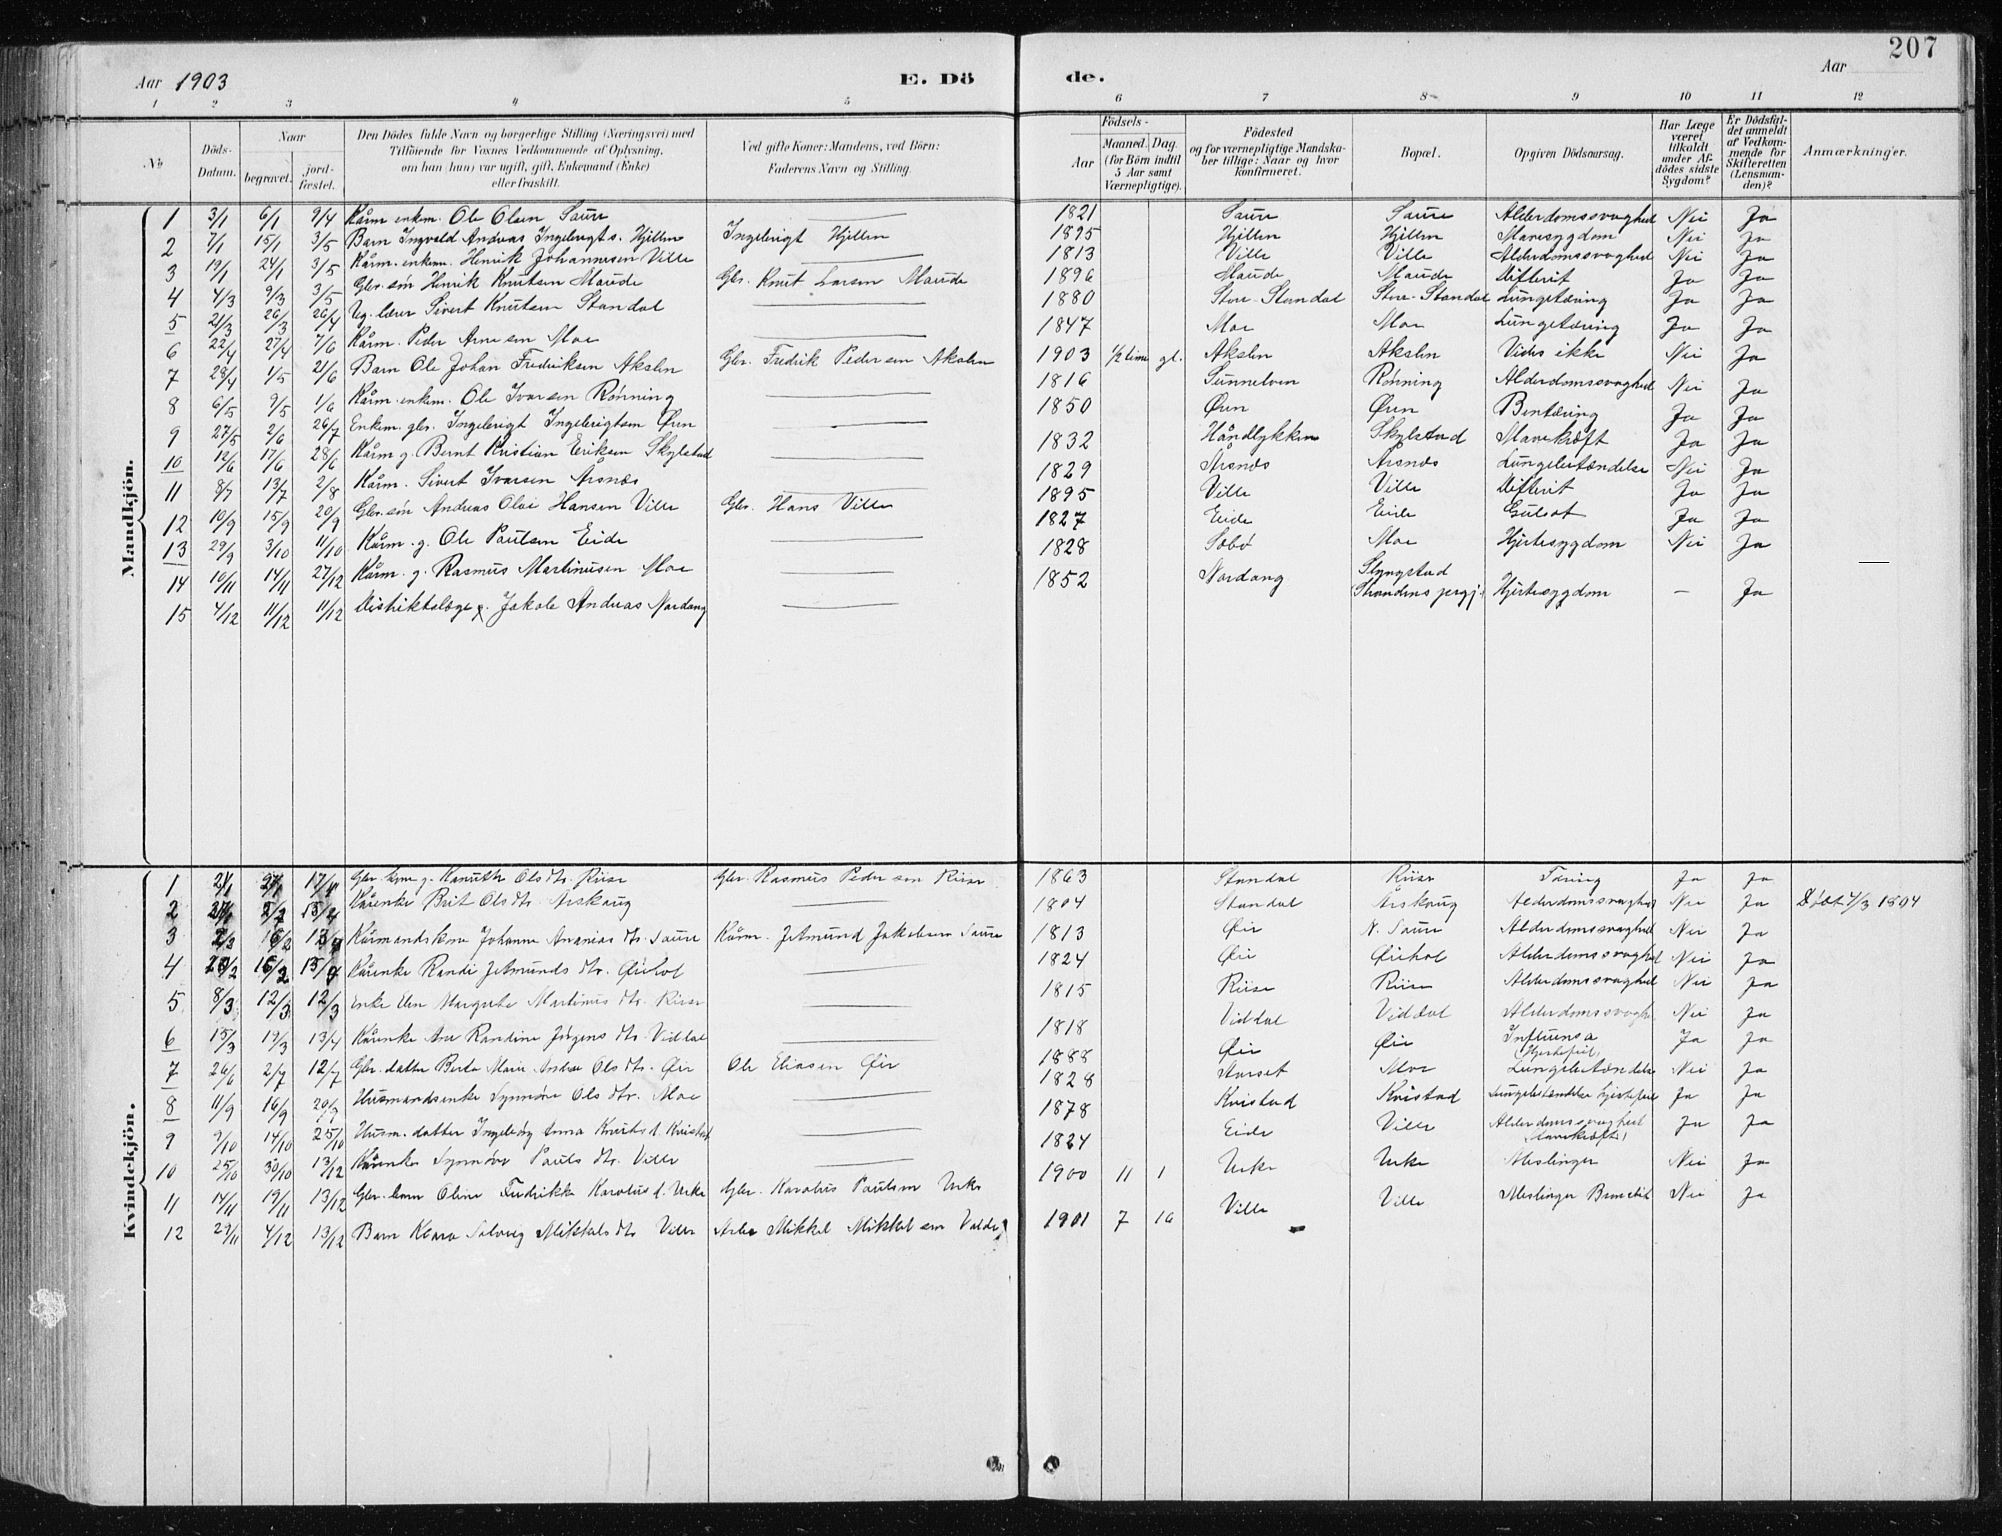 207
Aar 1903 E. Dö de. Aar
1 2 3 4 5 6 7 8 9 10 11 12
No
Döds-Datum.
Naar
begravet.
jordfæstet.
Den Dödes fulde Navn og borgerlige Stilling (Næringsvei) med
Tilföiende for Voxnes Vedkommende af Oplysning,
om han (hun) var ugift, gift, Enkemand (Enke)
eller fraskilt.
Ved gifte Koner: Mandens, ved Börn:
Faderens Navn og Stilling.
Födsels-
Aar
Maaned. Dag.
(for Börn indtil
5 Aar samt
Værnepligtige).
Födested
og for værnepligtige Mandska-
ber tillige: Naar og hvor
konfirmeret.
Bopæl.
Opgiven Dödsaarsag.
Har Læge
været
tilkaldt
under Af-
dödes sidste
Sygdom?
Er Dödsfal-
det anmeldt
af Vedkom-
mende for
Skifteretten
(Lensman-
den)?
Anmærkninger.
Mandkjön.
1 3/1 6/1 9/4 Kårm. enkem. Ole Olsen Saure 1821 Saure Saure Alderdomssvaghed Nei Ja
2 7/1 15/1 3/5 Barn Ingvald Andreas Ingebrigts. Hjellen Ingebrigt Hjellen 1895 Hjellen Hjellen Mavesygdom Nei Ja
3 19/1 24/1 3/5 Kårm. enkem. Henrik Johannesen Ville 1813 Ville Ville Alderdomssvaghed Nei Ja
4 4/3 9/3 3/5 Gbr. søn Henrik Knutsen Maude Gbr. Knut Larsen Maude 1896 Maude Maude Difterit Ja Ja
5 21/3 26/3 26/4 Ug. lærer Sivert Knutsen Standal 1880 Store-Standal Store-Standal Lungetæring Ja Ja
6 22/4 27/4 7/6 Kårm. Peder Arnesen Moe 1847 Moe Moe Lungetæring Ja Ja
7 28/4 1/5 21/6 Barn Ole Johan Fredriksen Akslen Gbr. Fredrik Pedersen Akslen 1903 1/2 time gl. Akslen Akslen Vides ikke Nei Ja
8 6/5 9/5 1/6 Kårm. enkem. Ole Ivarsen Rønning 1816 Sunnelven Rønning Alderdomssvaghed Nei Ja
9 27/5 2/6 26/7 Enkem. gbr. Ingebrigt Ingebrigtsen Øren 1850 Øren Øren Bentæring Ja Ja
10 12/6 17/6 28/6 Kårm. g. Bernt Kristian Eriksen Skylstad 1832 Håndlykken Skylstad Mavekræft Ja Ja
11 8/7 13/7 2/8 Kårm. Sivert Ivarsen Årsnes 1829 Årsnes Årsnes Lungebetændelse Nei Ja
12 10/9 15/9 20/9 Gbr. søn Andreas Olai Hansen Ville Gbr. Hans Ville 1895 Ville Ville Difterit Ja Ja
13 29/9 3/10 11/10 Kårm. g. Ole Paulsen Eide 1827 Eide Eide Gulsot Ja Ja
14 10/11 14/11 27/12 Kårm. g. Rasmus Martinusen Moe 1828 Sæbø Moe Hjertesygdom Nei Ja
15 4/12 11/12 11/12 Distriktslæge g. Jakob Andreas Nordang 1852 Nordang Slyngstad Strandens prgj. Hjertesygdom — Ja
Kvindekjön.
1 17/4 Gbr. kone g. Olsdtr. Riise Gbr. Rasmus Pedersen Riise 1863 Standal Riise Tæring Ja Ja
2 Kårenke Brit Olsdtr. Årskoug 1804 Standal Årskoug Alderdomssvaghed Nei Ja Døbt 4/3 1804
3 Kårmandskone Johanne Ananiasdtr. Saure Kårm. Jetmund Jakobsen Saure 1813 Øie N. Saure Alderdomssvaghed Nei Ja
4 Kårenke Randi Jetmundsdtr. Øiehol 1824 Øie Øiehol Alderdomssvaghed Nei Ja
5 8/3 12/3 12/3 Enke Margrete Martinusdtr. Riise 1815 Riise Riise Alderdomssvaghed Nei Ja
6 15/3 19/3 13/4 Kårenke Ane Randine Jørgensdtr. Viddal 1818 Viddal Viddal Alderdomssvaghed Nei Ja
7 26/6 2/7 12/7 Gbr. datter Berte Marie Olsdtr. Øie Ole Eliasen Øie 1888 Øie Øie Influensa (Hjertefeil) Ja Ja
8 11/9 16/9 20/9 Husmandsenke Synnøve Olsdtr. Moe 1828 Moe Lungebetændelse Nei Ja
9 9/10 14/10 25/10 Husm. datter Ingeborg Anna Knutsd. Kvistad 1878 Kvistad Kvistad Lungebetændelse Hjertefeil Ja Ja
10 25/10 30/10 13/12 Kårenke Synnøve Paulsdtr. Ville 1824 Eide Ville Alderdomssvaghed (Mavekræft) Ja Ja
11 14/11 19/11 13/12 Gbr. barn Oline Fredrikke Karolusd. Urke Gbr. Karolus Paulsen Urke 1900 11 1 Urke Urke Meslinger Nei Ja
12 29/11 4/12 13/12 Barn Klara Solveig Mikkelsdtr. Ville Mikkel Mikkelsen 1901 7 16 Ville Ville Meslinger Nei Ja